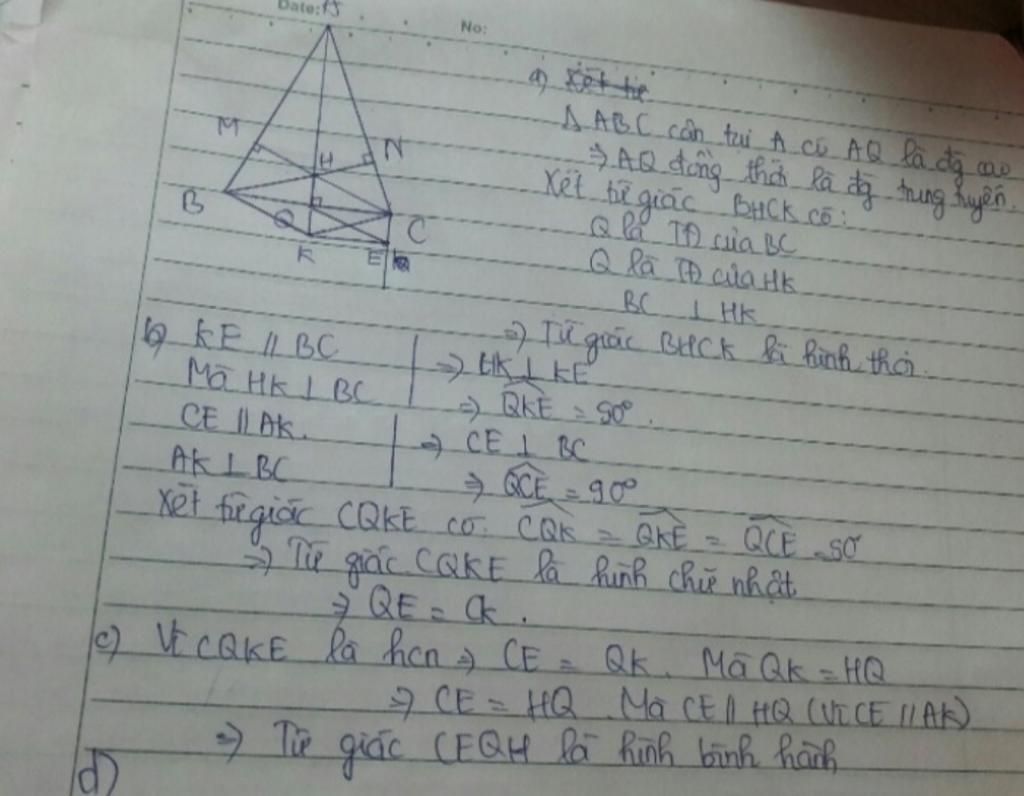 Date:
No:
A
M
N
H
B
Q
C
K
E
a) Xét tứ
Δ ABC cân tại A có AQ là đg cao
⇒ AQ đồng thời là đg trung tuyến.
Xét tứ giác BHCK có:
Q là TĐ của BC
Q là TĐ của HK
BC ⊥ HK
⇒ Tứ giác BHCK là hình thoi.
b) KE // BC
Mà HK ⊥ BC
⇒ HK ⊥ KE
⇒ QKE = 90°.
CE // AK.
AK ⊥ BC
⇒ CE ⊥ BC
⇒ QCE = 90°
Xét tứ giác CQKE có: CQK = QKE = QCE = 90°
⇒ Tứ giác CQKE là hình chữ nhật
⇒ QE = CK.
c) Vì CQKE là hcn ⇒ CE = QK. Mà QK = HQ
⇒ CE = HQ. Mà CE // HQ (Vì CE // AK)
⇒ Tứ giác CEQH là hình bình hành
d)